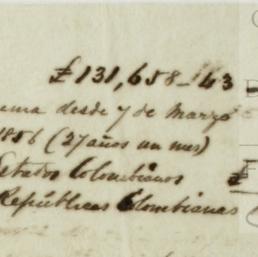 £131,658-43
uma desde 7 de Marzo
1856 (27 años un mes)
Estados Colombianos £
Repúblicas Colombianas